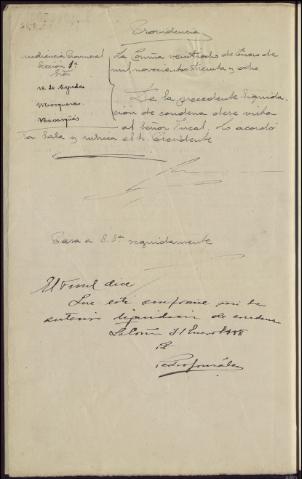 Providencia
Audiencia Provincial
Sección 1ª
La Coruña veintiocho de Enero de
mil novecientos treinta y ocho
De la precedente liquida
ción de condena dese vista
al Señor Fiscal, lo acordó
la Sala y rubrica el Sr. Presidente
Pasa a S. Sª seguidamente
El Fiscal dice
Que está conforme con la
anterior liquidación de condena
La Coruña 31 Enero 1938
Pedro González